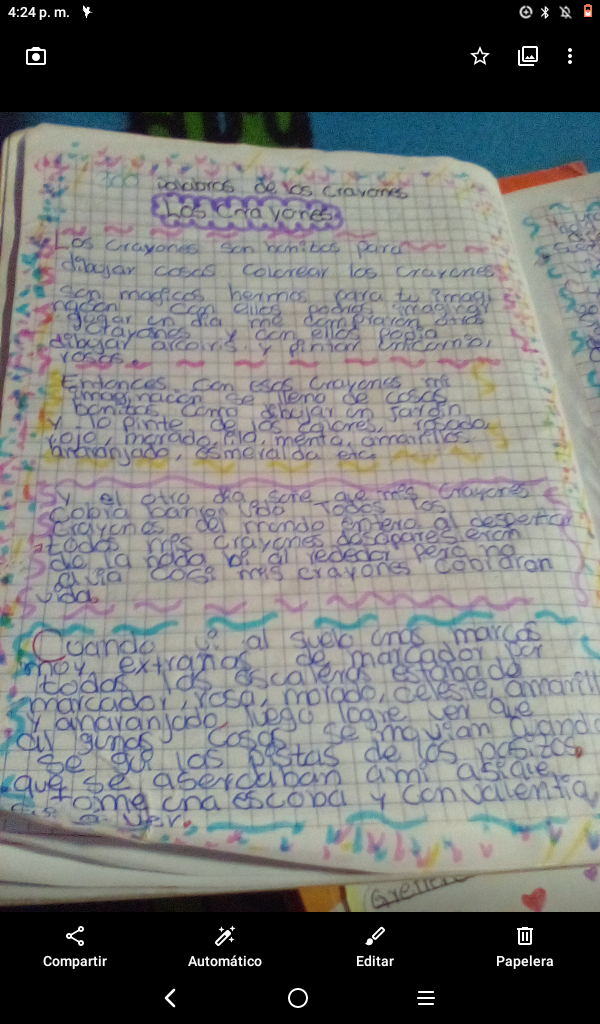 4:24 p. m.
300 palabras de los Crayones
Los Crayones
Los Crayones son bonitos para
dibujar cosas colorear los crayones
son magicos hermos para tu imagi
nacion con ellos podras imaginar
un dia me compraron otros
crayones y con ellos podia
dibujar arcoiris y pintar unicornios,
rosas.
Entonces con esos crayones mi
imaginacion se lleno de cosas
bonitas como dibujar un jardin
y lo pinte de los colores, rosado,
rojo, morado, lila, menta, amarillos
anaranjado, esmeralda etc.
y el otro dia soñe que mis crayones
cobraban vida todos los
crayones del mundo entero al despertar
todos mis crayones desaparesieron
de la nada vi al rededor pero no
avia cosi mis crayones cobraran
vida
Cuando vi al suelo unas marcas
muy extrañas de marcador por
todos las escaleras estaba de
marcador, rosa, morado, celeste, amarill
y anaranjado luego logre ver que
algunas cosas se movian cuando
se gui las pistas de los pasitos.
que se asercaban ami asique
tome una escoba y con valentia
a ver.
Compartir
Automático
Editar
Papelera